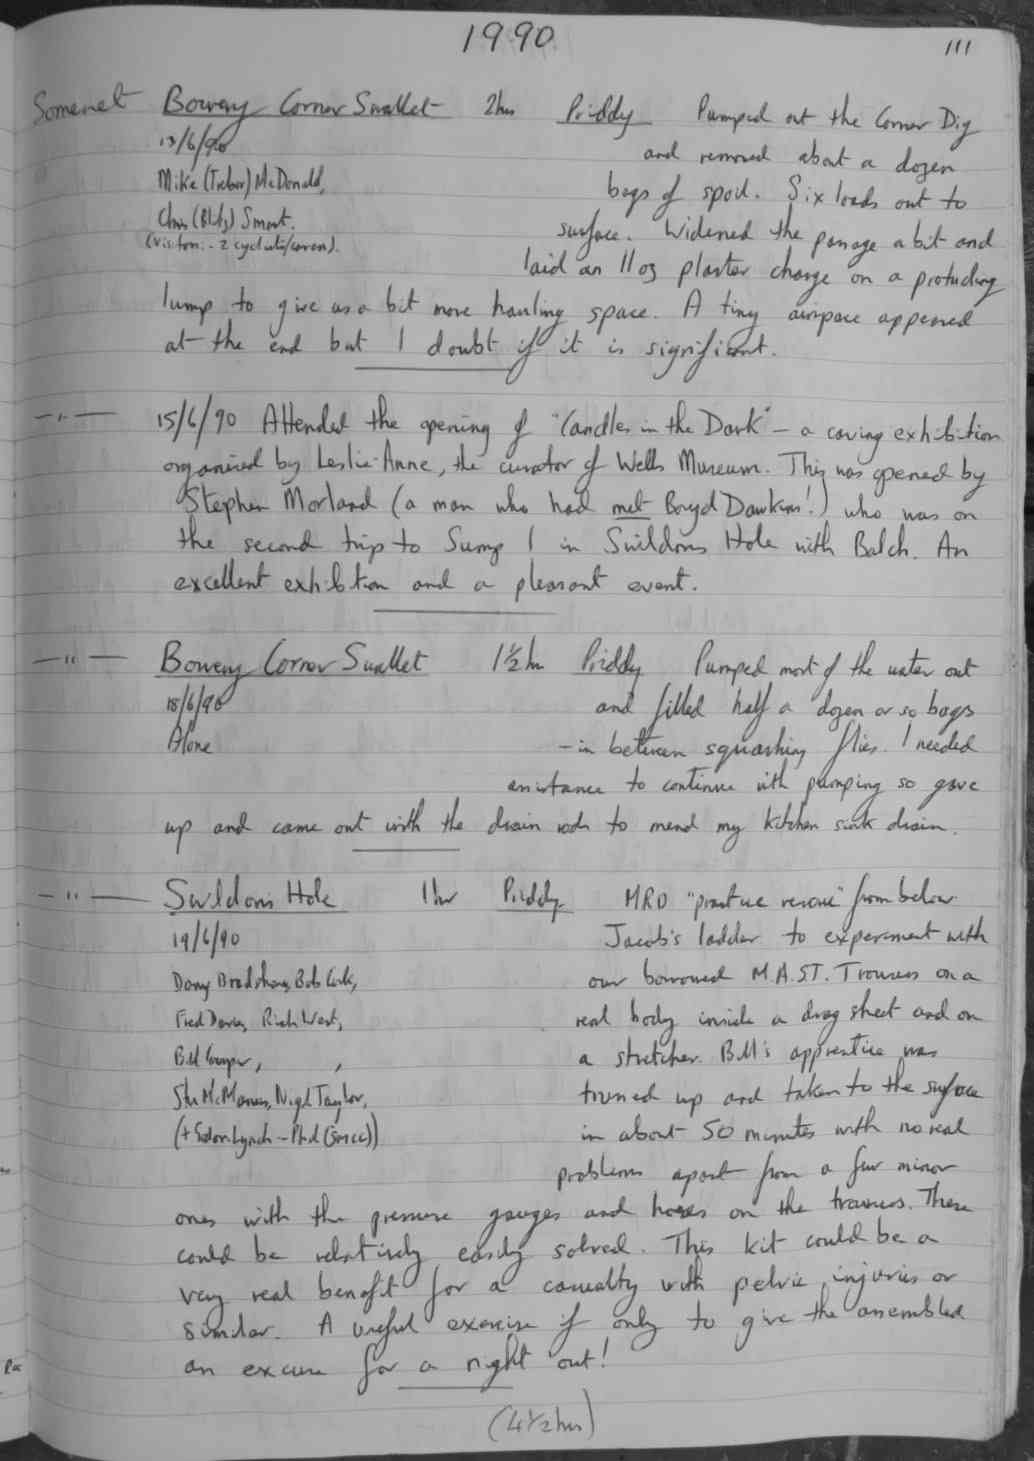 1990
111
Somerset Bowery Corner Swallet 2hrs Priddy Pumped out the Corner Dig
13/6/90 and removed about a dozen
Mike (Trebor) McDonald, bags of spoil. Six loads out to
Chris (Blitz) Smart. surface. Widened the passage a bit and
(Visitors: - 2 cyclists/cavers). laid an 11oz plaster charge on a protuding
lump to give us a bit more hauling space. A tiny airspace appeared
at the end but I doubt if it is significant.
—"— 15/6/90 Attended the opening of "Candles in the Dark" - a caving exhibition
organised by Leslie-Anne, the curator of Wells Museum. This was opened by
Stephen Morland (a man who had met Boyd Dawkins!) who was on
the second trip to Sump 1 in Swildons Hole with Balch. An
excellent exhibition and a pleasant event.
—"— Bowery Corner Swallet 1½hr Priddy Pumped most of the water out
18/6/90 and filled half a dozen or so bags
Alone - in between squashing flies. I needed
assistance to continue with pumping so gave
up and came out with the drain rods to mend my kitchen sink drain.
—"— Swildons Hole 1hr Priddy MRO "practice rescue" from below
19/6/90 Jacob's ladder to experiment with
Dany Bradshaw, Bob Cork, our borrowed M.A.S.T. Trousers on a
Fred Davies, Rich West, real body inside a drag sheet and on
Bill Cooper, , a stretcher. Bill's apprentice was
Stu McManus, Nigel Taylor, trussed up and taken to the surface
(+ Lynch - Phil (SMCC)) in about 50 minutes with no real
problems apart from a few minor
ones with the pressure gauges and hoses on the trousers. These
could be relatively easily solved. This kit could be a
very real benefit for a casualty with pelvic injuries or
similar. A useful exercise if only to give the assembled
an excuse for a night out!
(4½hrs)